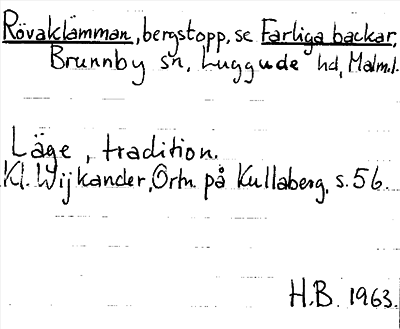 Rövaklämman, bergstopp, se Farliga backar,
Brunnby sn, Luggude hd, Malm.l.
Läge, tradition.
Kl. Wijkander, Ortn. på Kullaberg, s. 56.
H.B. 1963.